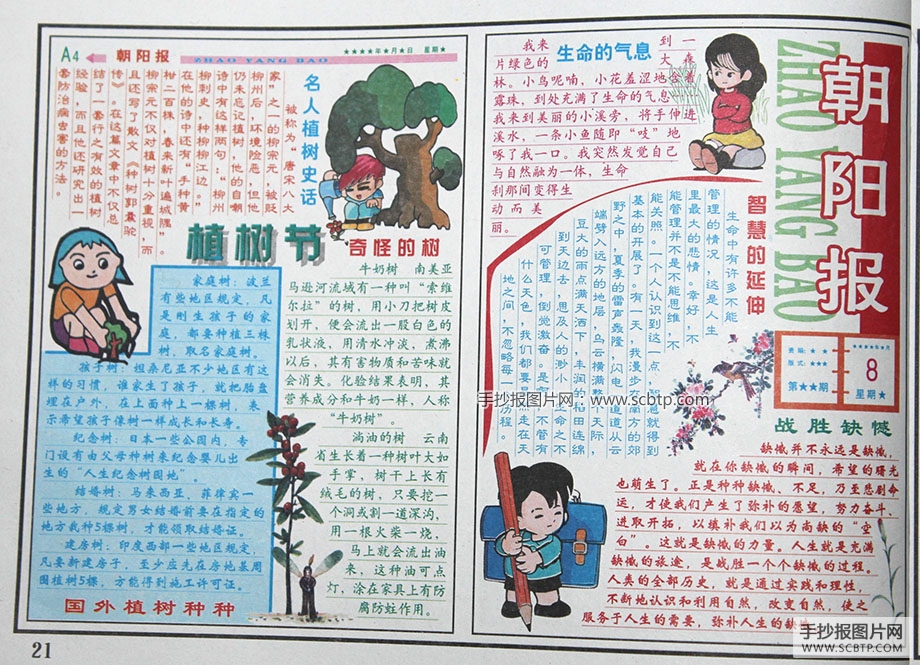 A4
朝阳报
ZHAO YANG BAO
★★★★年★月★日 星期★
名人植树史话
被称为“唐宋八大
家”之一的柳宗元，被贬
柳州后，环境险恶，但他
仍未忘记植树，他的自嘲
诗中有这样两句：“柳州
柳刺史，种柳柳江边。”
在他的诗中还有“手种黄
柑二百株，春来新叶遍城隅”。
柳宗元不仅对植树十分重视，而
且还写了散文《种树郭橐驼
传》。在这篇文章中不仅总
结了一套行之有效的植树
经验，而且他还研究出一
套防治病虫害的方法。
植树节
家庭树：波兰
有些地区规定，凡
是刚生孩子的家
庭，都要种植三棵
树，取名家庭树。
孩子树：坦桑尼亚不少地区有这
样的习惯，谁家生了孩子，就把胎盘
埋在户外，在上面种上一棵树，表
示希望孩子像树一样成长和长寿。
纪念树：日本一些公园内，专
门设有由父母种树来纪念婴儿出
生的“人生纪念树园地”。
结婚树：马来西亚、菲律宾一
些地方，规定男女结婚前要在指定的
地方栽种5棵树，才能领取结婚证。
建房树：印度西部一些地区规定，
凡要新建房子，至少应先在房地基周
围植树5棵，方能得到施工许可证。
国外植树种种
奇怪的树
牛奶树 南美亚
马逊河流域有一种叫“索维
尔拉”的树，用小刀把树皮
划开，便会流出一股白色的
乳状液，用清水冲淡，煮沸
以后，其有害物质和苦味就
会消失。化验结果表明，其
营养成分和牛奶一样，人称
“牛奶树”。
淌油的树 云南
省生长着一种树叶大如
手掌，树干上长有
绒毛的树，只要挖一
个洞或割一道深沟，
用一根火柴一烧，
马上就会流出油
来，这种油可点
灯，涂在家具上有防
腐防蛀作用。
21
生命的气息
我来到一
片绿色的大森
林。小鸟呢喃，小花羞涩地含着
露珠，到处充满了生命的气息
我来到美丽的小溪旁，将手伸进
溪水，一条小鱼随即“吱”地
啄了我一口。我突然发觉自己
与自然融为一体，生命
刹那间变得生
动而美
丽。
智慧的延伸
生命中有许多不能
管理的情况，这是人生
里最大的悲情。幸好，不
能管理并不是不能思维，不
能关照。一个人认识到这一点，智慧就得到
基本的开展了。有一天，我漫步在南方的郊
野之中，夏季的雷声轰隆，闪电一道道从云
端劈入远方的地层，乌云横满整个天际，
豆大的雨点满天洒下，丰润的稻田连绵
到天边去，思及人的渺小、生命之不
可管理，倒觉激奋。是的，不管有
什么天色，我们都要走在天
地之间，不忽略每一历程。
朝阳报
ZHAO YANG BAO
责编：★ ★
版式：★★★
第★★期
★★★★年★月
8
星期★
战胜缺憾
缺憾并不永远是缺憾，
就在你缺憾的瞬间，希望的曙光
也萌生了。正是种种缺憾、不足，乃至悲剧命
运，才使我们产生了弥补的愿望，努力奋斗，
进取开拓，以填补我们以为尚缺的“空
白”。这就是缺憾的力量。人生就是充满
缺憾的旅途，是战胜一个个缺憾的过程。
人类的全部历史，就是通过实践和理性，
不断地认识和利用自然，改变自然，使之
服务于人生的需要，弥补人生的缺憾
手抄报图片网：www.scbtp.com
手抄报图片网
WWW.SCBTP.COM